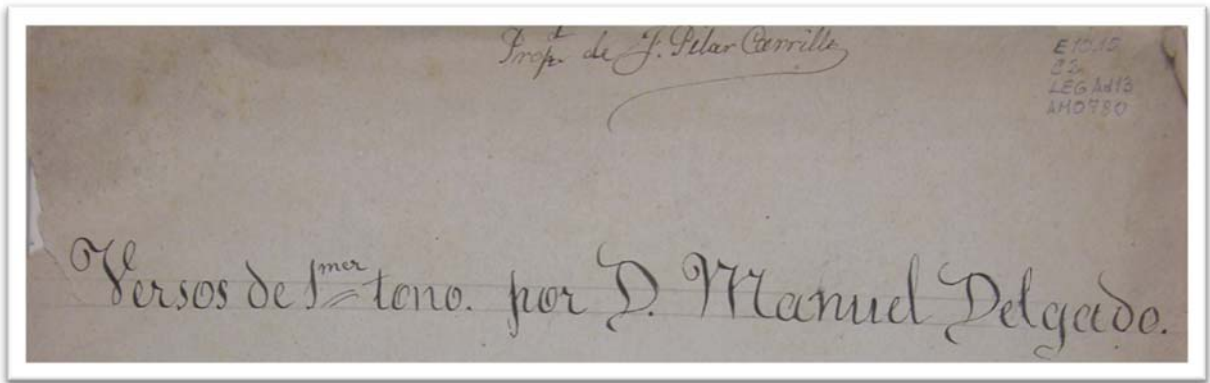 Prop.d de J. Pilar Carrillo
E10.15
C2
LEG Ad13
AM0780
Versos de 1mer tono. por D. Manuel Delgado.